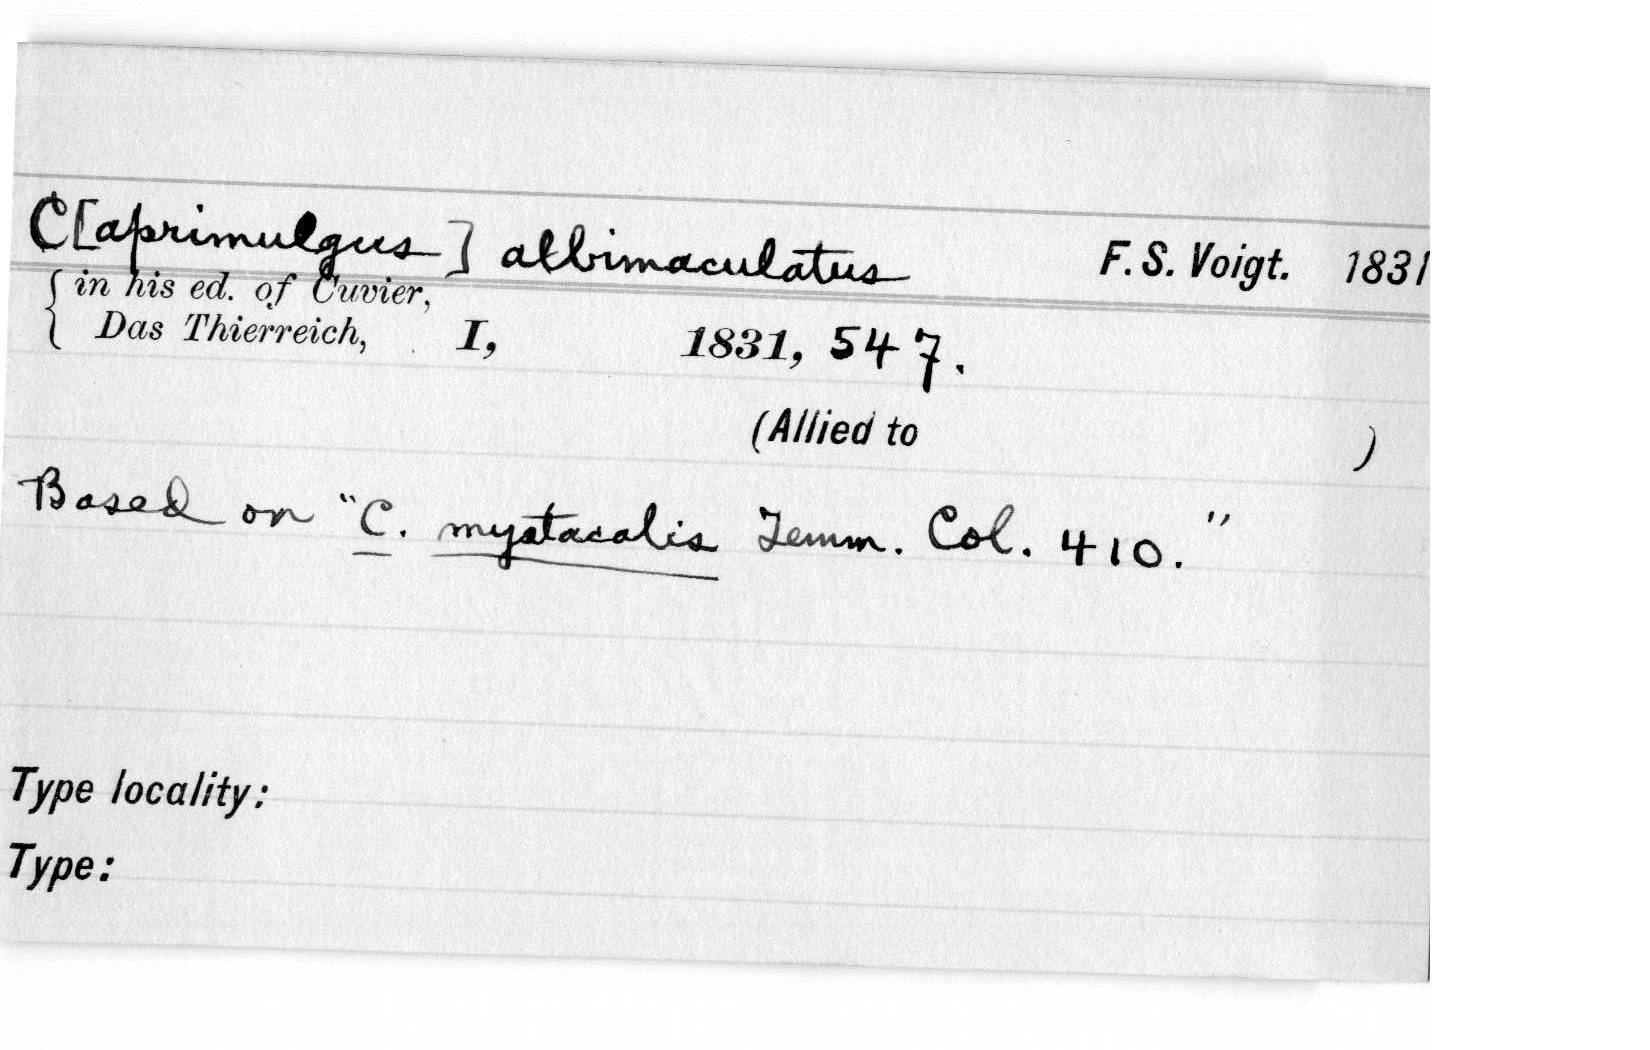 C[aprimulgus] albimaculatus F. S. Voigt. 1831
{ in his ed. of Cuvier,
Das Thierreich, I, 1831, 547.
(Allied to )
Based on "C. mystacalis Temm. Col. 410."
Type locality:
Type: